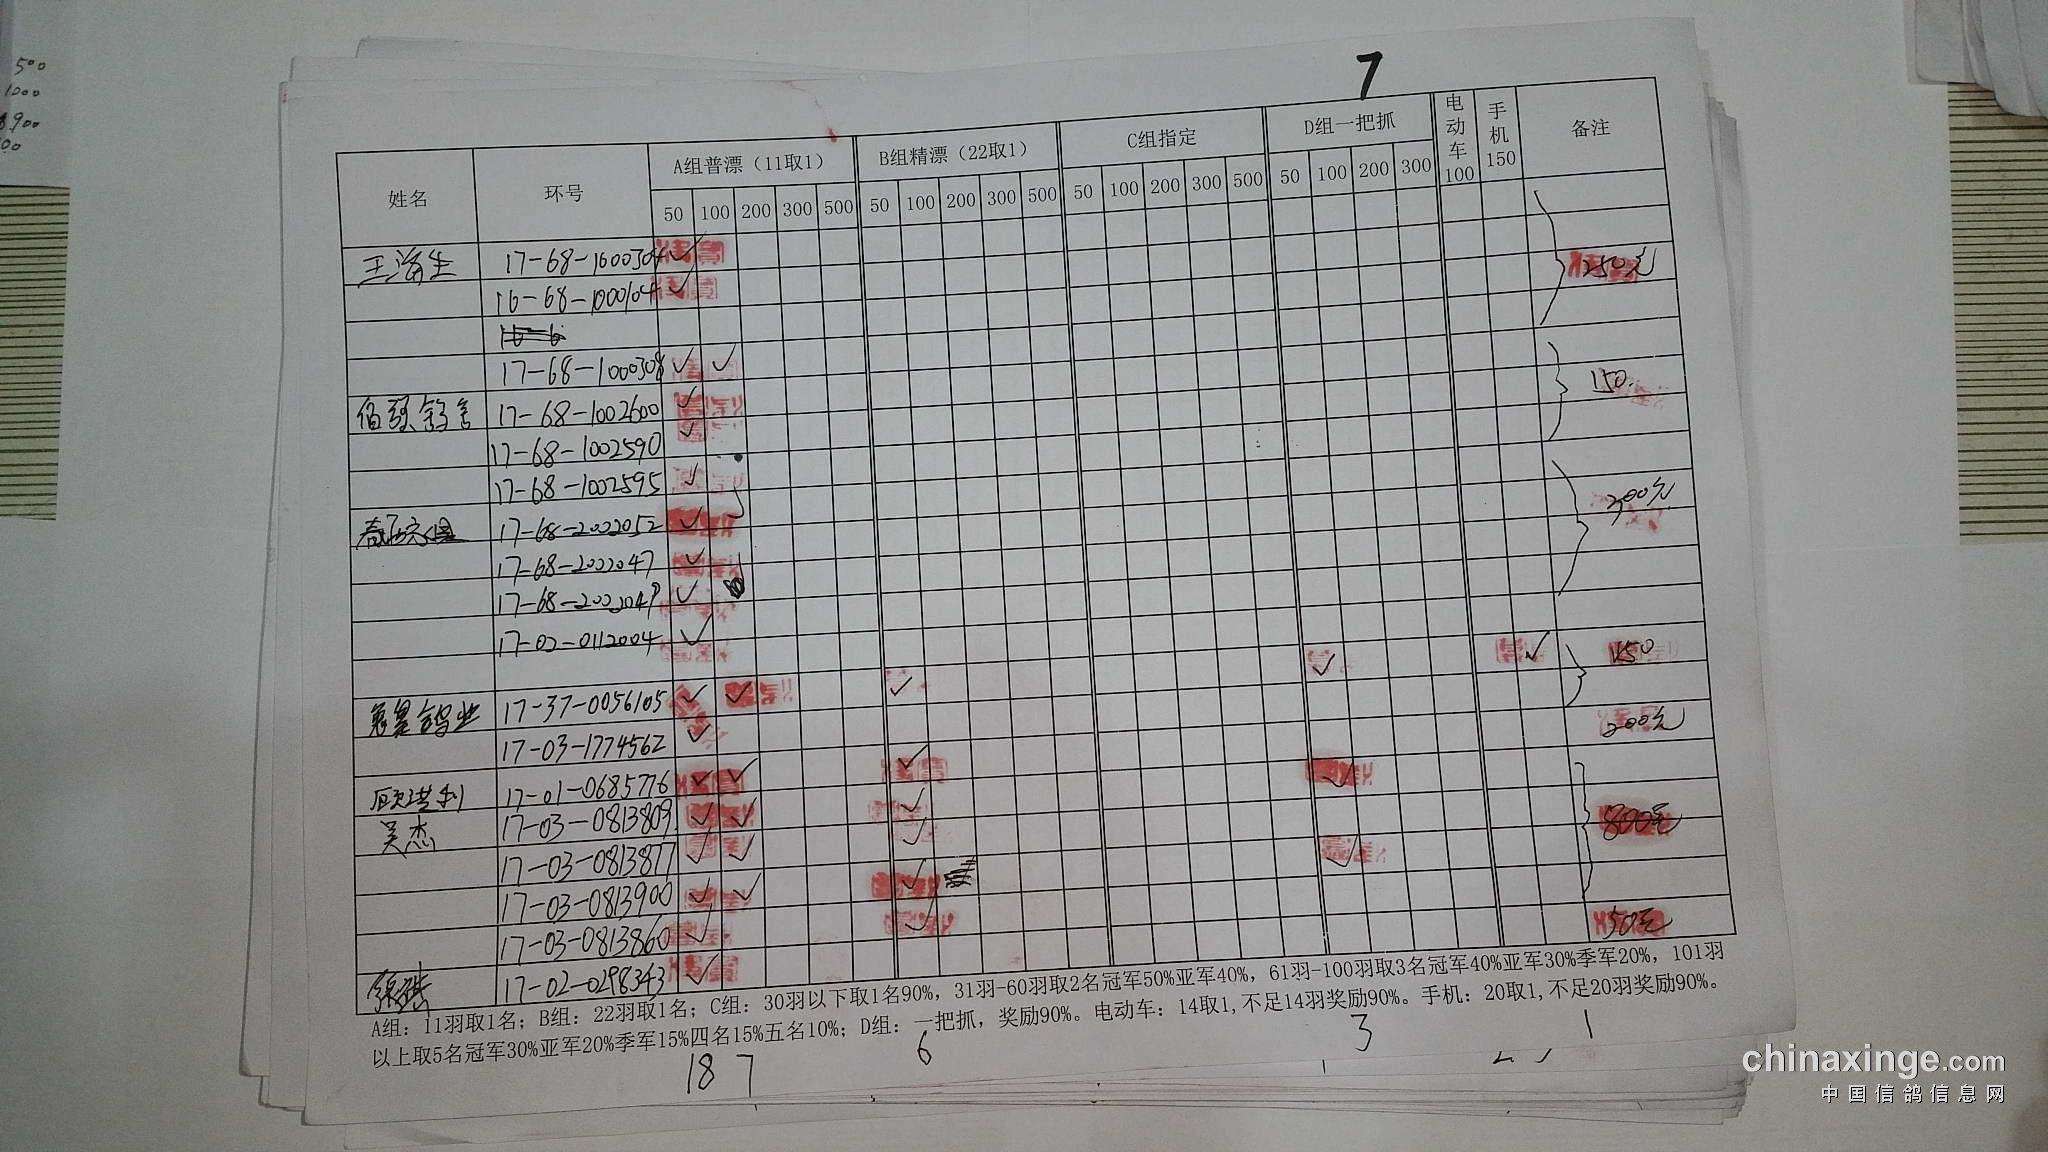 500
1000
900
7
姓名 环号 A组普漂（11取1） B组精漂（22取1） C组指定 D组一把抓 电动车100 手机150 备注
50 100 200 300 500 50 100 200 300 500 50 100 200 300 500 50 100 200 300
王海生 17-68-1000304 ✓ 250元
16-68-1000104 ✓
17-68-1000308 ✓ ✓
17-68-1002600 ✓ 150.
17-68-1002590 ✓
17-68-1002595 ✓
17-68-2022052 ✓ 300元
17-68-2022047 ✓
17-68-2022049 ✓
17-02-0112004 ✓
鸽业 17-37-0056105 ✓ ✓ ✓ ✓ ✓ 450
17-03-1774562 ✓
17-01-0685776 ✓ ✓ ✓ ✓ 200元
吴杰 17-03-0813809 ✓ ✓ ✓ 800元
17-03-0813877 ✓ ✓ ✓ ✓
17-03-0813900 ✓ ✓ ✓
17-03-0813860 ✓ ✓
17-02-0298343 ✓ 50元
A组：11羽取1名；B组：22羽取1名；C组：30羽以下取1名90%，31羽-60羽取2名冠军50%亚军40%，61羽-100羽取3名冠军40%亚军30%季军20%，101羽
以上取5名冠军30%亚军20%季军15%四名15%五名10%；D组：一把抓，奖励90%。电动车：14取1，不足14羽奖励90%。手机：20取1，不足20羽奖励90%。
18 7 6 3 1
chinaxinge.com
中国信鸽信息网